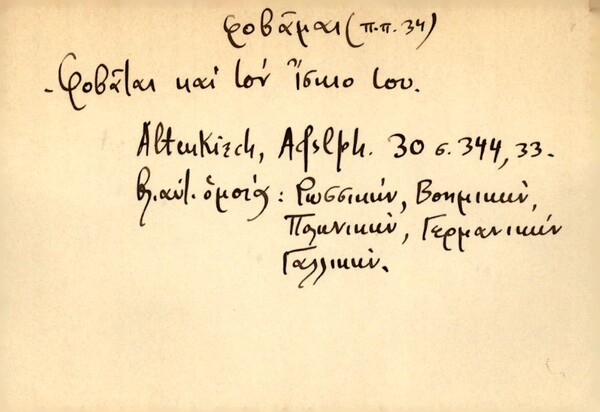 φοβᾶμαι (π.π. 34)
- Φοβᾶται καὶ τὸν ἴσκιο του.
Altenkirch, AfslPh. 30 σ. 344, 33.
βλ. αὐτ. ὅμοιά: Ρωσσικήν, Βοημικὴν,
Πολωνικὴν, Γερμανικήν
Γαλλικὴν.